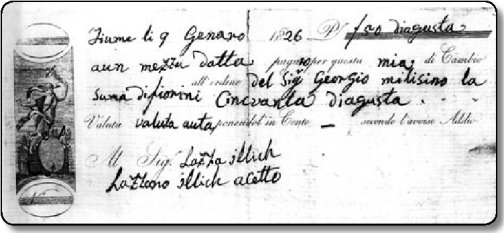 Fiume li 9 Genaro 1826 P f 50 diagusta
aun mezzu datta pagate per questa mia di Cambio
all'ordine del Sig Georgio milisino la
suma di fiorini Cincvanta diagusta
Valuta valuta auta ponendol' in Conto — secondo l'avviso Addio
Al Sig. Lazza illich
Lazzaro illich acetto